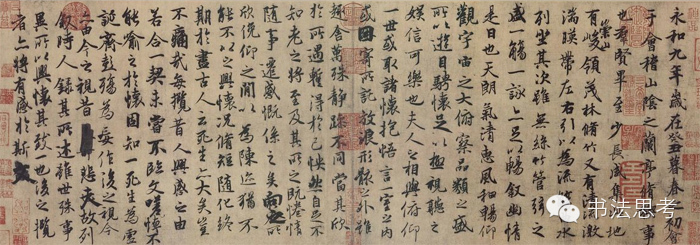 永和九年歲在癸丑暮春之初會
于會稽山陰之蘭亭脩稧事
也羣賢畢至少長咸集此地
有崇山峻領茂林脩竹又有清流激
湍暎帶左右引以為流觴曲水
列坐其次雖無絲竹管弦之
盛一觴一詠亦足以暢敘幽情
是日也天朗氣清惠風和暢仰
觀宇宙之大俯察品類之盛
所以遊目騁懷足以極視聽之
娛信可樂也夫人之相與俯仰
一世或取諸懷抱悟言一室之內
或因寄所託放浪形骸之外雖
趣舍萬殊靜躁不同當其欣
於所遇暫得於己怏然自足不
知老之將至及其所之既惓情
隨事遷感慨係之矣向之所
欣俛仰之閒以為陳迹猶不
能不以之興懷況脩短隨化終
期於盡古人云死生亦大矣豈
不痛哉每攬昔人興感之由
若合一契未嘗不臨文嗟悼不
能喻之於懷固知一死生為虛
誕齊彭殤為妄作後之視今
亦由今之視昔悲夫故列
敘時人錄其所述雖世殊事
異所以興懷其致一也後之攬
者亦將有感於斯文
书法思考